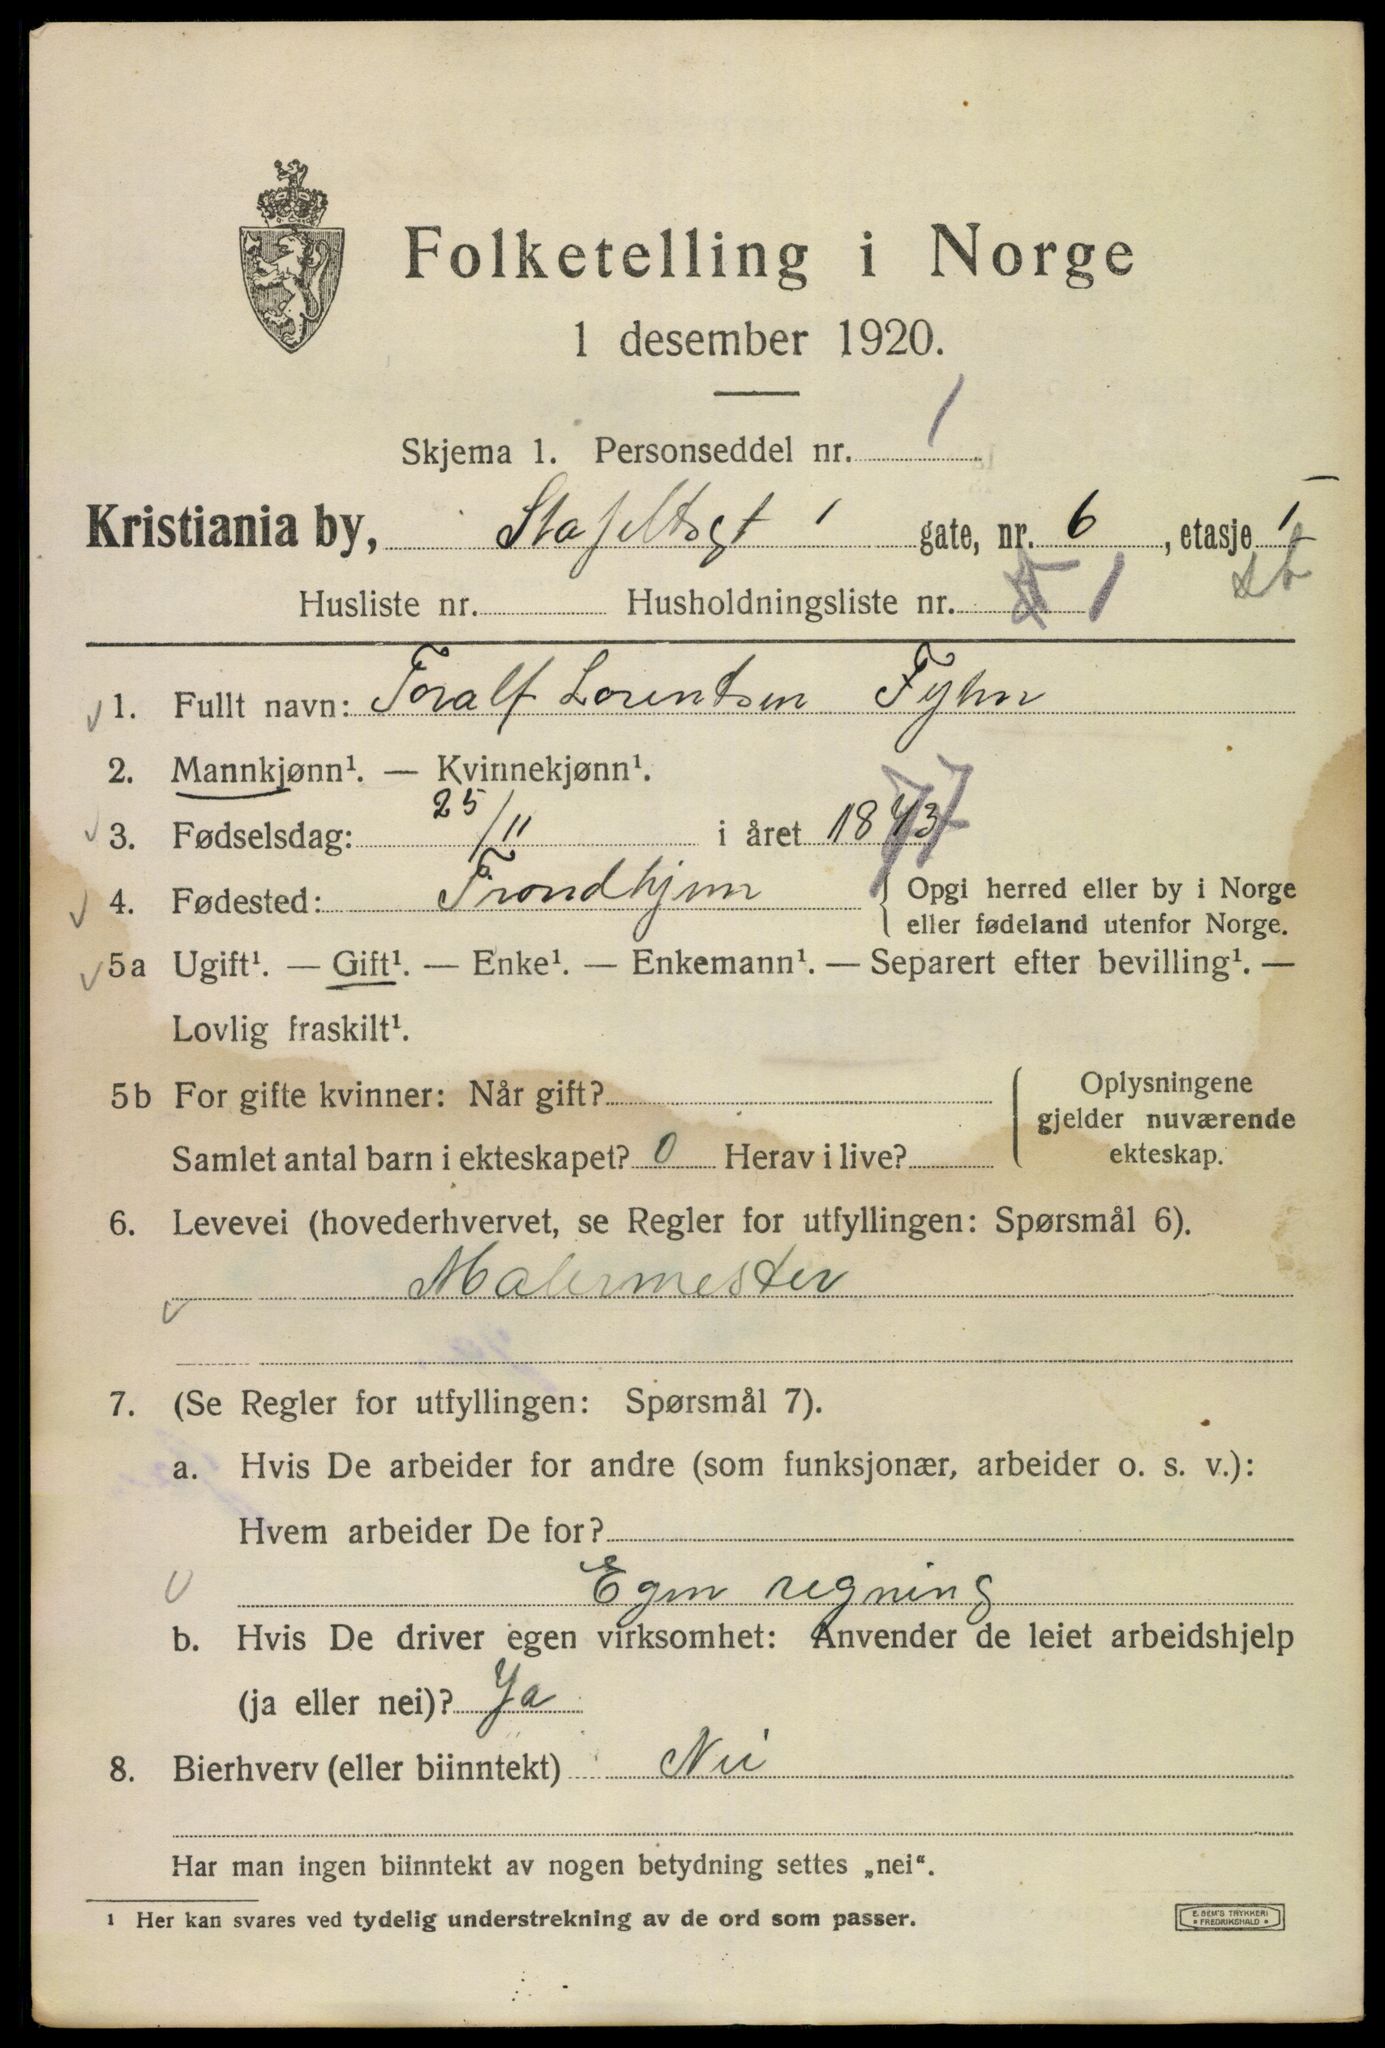 Folketelling i Norge
1 desember 1920.
Skjema 1. Personseddel nr. 1
Kristiania by, gate, nr. 6, etasje 1
Husliste nr. Husholdningsliste nr. 1
1. Fullt navn: Toralf Lorentsen Fyhn
2. Mannkjønn¹. — Kvinnekjønn¹.
3. Fødselsdag: 25/11 i året 18 77
4. Fødested: Trondhjem { Opgi herred eller by i Norge
eller fødeland utenfor Norge.
5a Ugift¹. — Gift¹. — Enke¹. — Enkemann¹. — Separert efter bevilling¹. —
Lovlig fraskilt¹.
5b For gifte kvinner: Når gift? { Oplysningene
gjelder nuværende
Samlet antal barn i ekteskapet? 0 Herav i live? ekteskap.
6. Levevei (hovederhvervet, se Regler for utfyllingen: Spørsmål 6).
Malermester
7. (Se Regler for utfyllingen: Spørsmål 7).
a. Hvis De arbeider for andre (som funksjonær, arbeider o. s. v.):
Hvem arbeider De for?
Egen regning
b. Hvis De driver egen virksomhet: Anvender de leiet arbeidshjelp
(ja eller nei)? Ja
8. Bierhverv (eller biinntekt) Nei
Har man ingen biinntekt av nogen betydning settes „nei“.
¹ Her kan svares ved tydelig understrekning av de ord som passer.
E. SEM'S TRYKKERI
• FREDRIKSHALD •